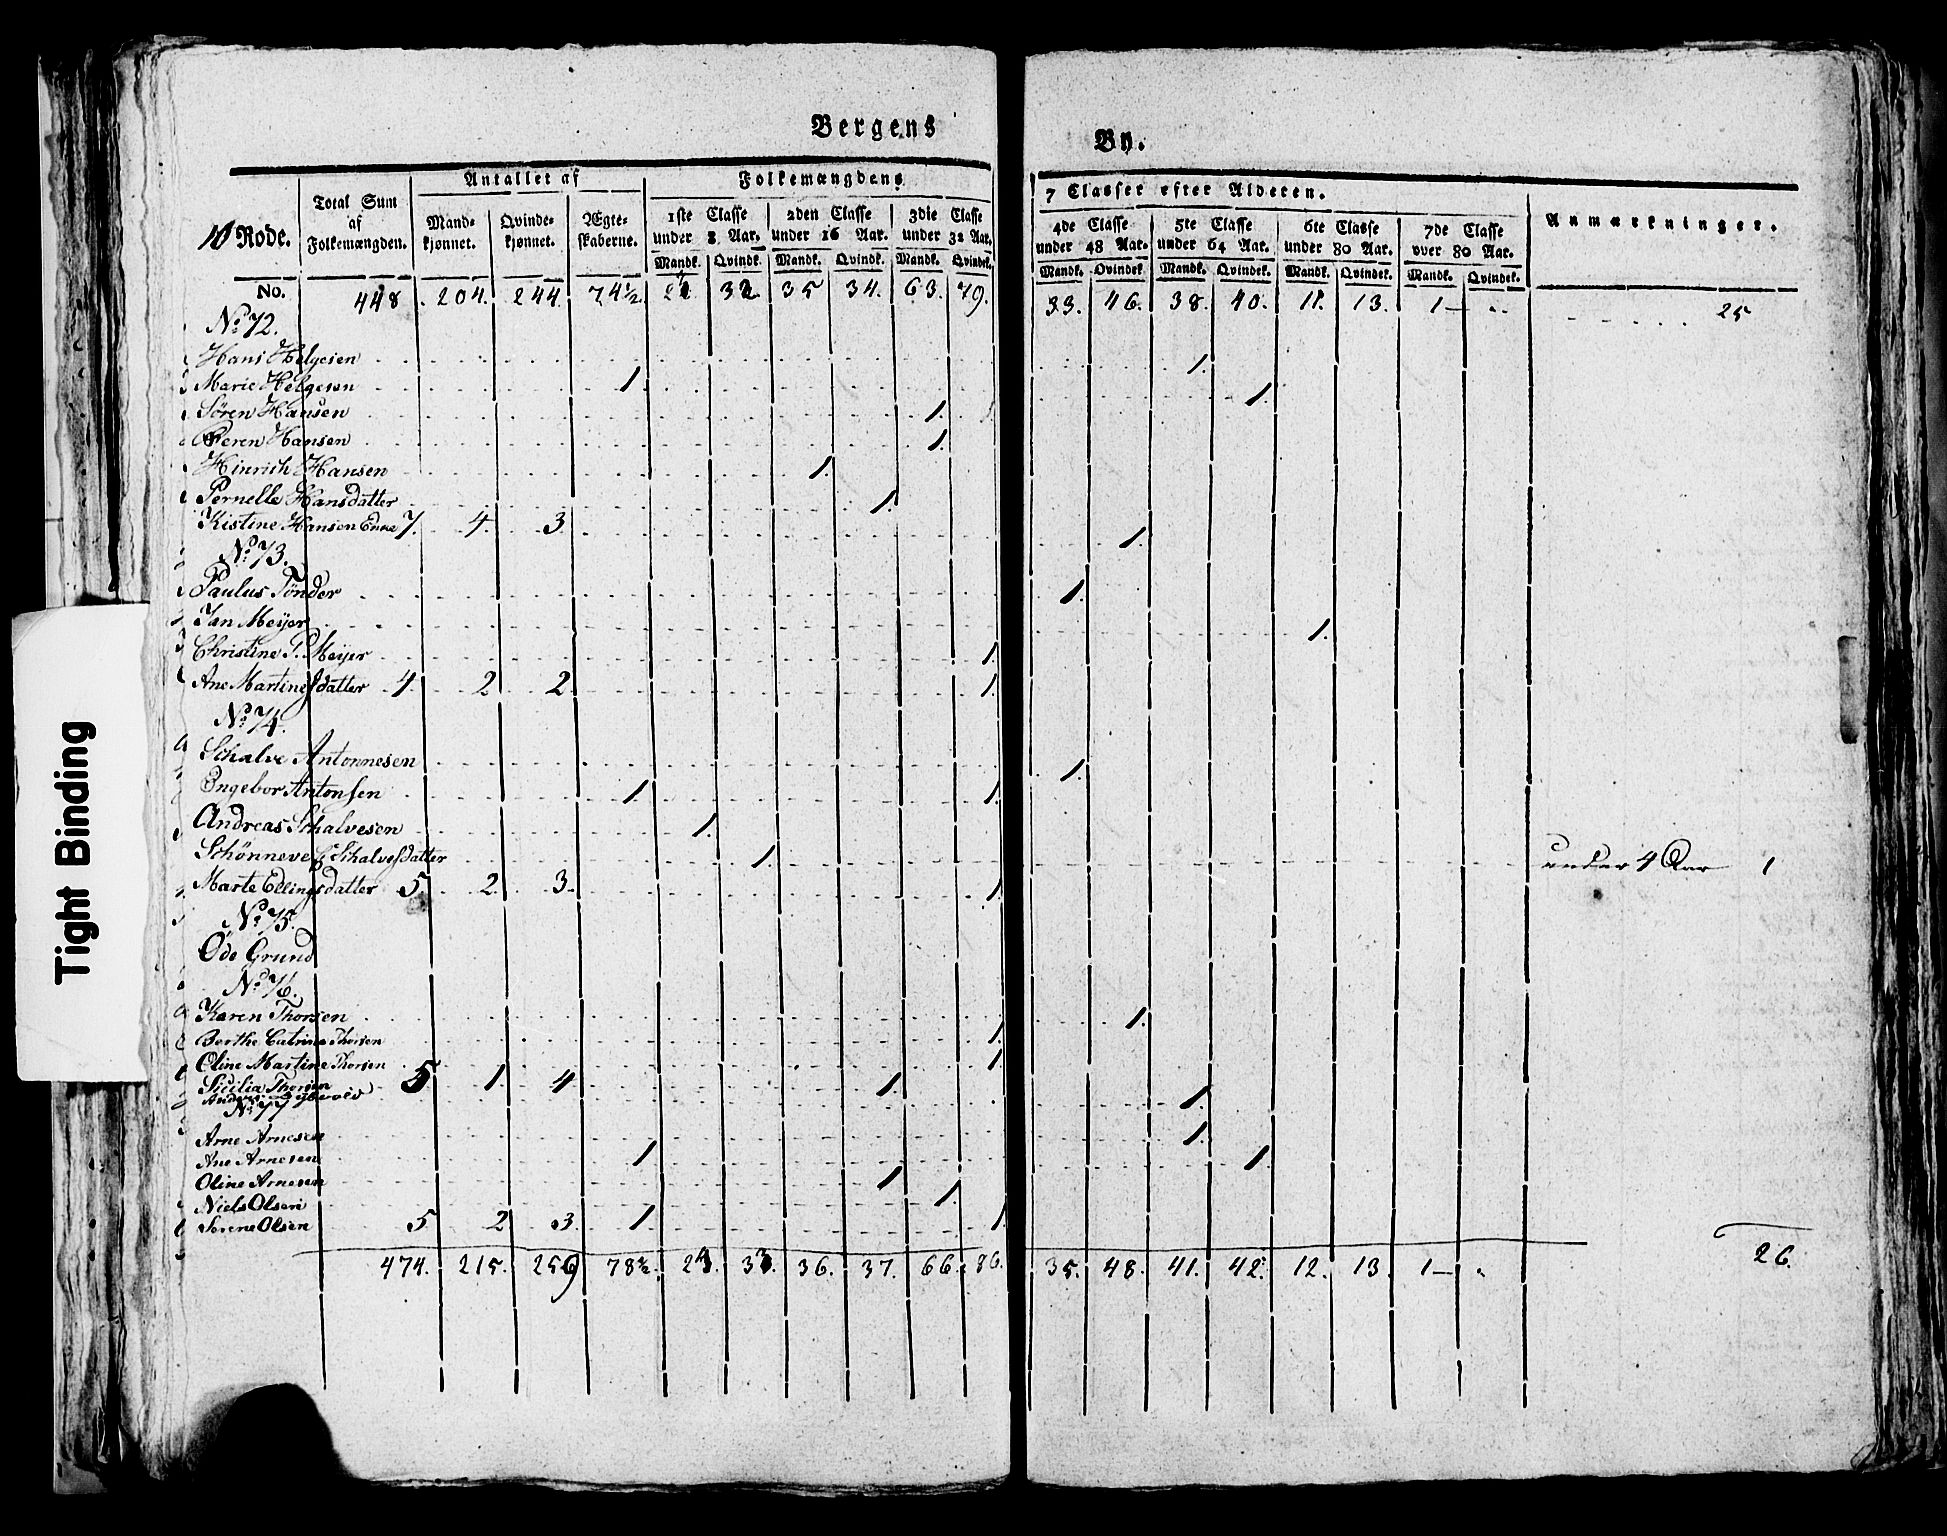 Bergens By.
10 Rode. Total Sum af Folkemængden. Antallet af Mand-kjønnet. Qvinde-kjønnet. Ægte-skaberne. Folkemængdens 7 Classer efter Alderen. Anmærkninger.
1ste Classe under 8 Aar. 2den Classe under 16 Aar. 3die Classe under 32 Aar. 4de Classe under 48 Aar. 5te Classe under 64 Aar. 6te Classe under 80 Aar. 7de Classe over 80 Aar.
Mandk. Qvindek. Mandk. Qvindk. Mandk. Qvindek. Mandk. Qvindek. Mandk. Qvindek. Mandk. Qvindek. Mandk. Qvindek.
No. 448. 204. 244. 74½ 32 35 34. 63. 79. 33. 46. 38. 40. 11. 13. 1 — 25
No. 72.
Hans Helgesen 1.
Marie Helgesen 1. 1.
Sören Hansen 1.
Peren Hansen 1.
Hinrich Hansen 1.
Pernelle Hansdatter 1.
Kistine Hansen Enne 7. 4. 3. 1.
No. 73.
Paulus Tönder 1.
Jan Meijer 1.
Christine P. Meijer 1.
Ane Martinesdatter 4. 2 2 1.
No. 74.
Schalve Antonnesen 1.
Engebor Antonsen 1. 1.
Andreas Schalvesen 1.
Schönneve Schalvesdatter 1. under 4 Aar 1
Marte Ellingsdatter 5. 2. 3. 1.
No. 75.
Öde Grund
No. 76.
Karen Thorsen 1.
Berthe Catrine Thorsen 1.
Oline Martine Thorsen 1
Sicilia Thorsen 5 1 4 1.
Anders 1.
No. 77
Arne Arnesen 1.
Ane Arnesen 1 1
Oline Arnesen 1
Niels Olsen 1.
Serene Olsen 5. 2 3. 1 1.
474. 215. 259 78½. 24 33. 36. 37. 66. 86. 35. 48. 41. 42. 12. 13. 1 — 26.
Tight Binding